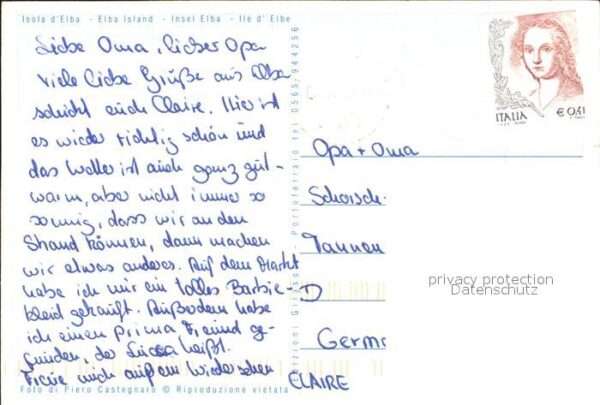 Isola d'Elba - Elba Island - Insel Elba - Ile d'Elbe
Liebe Oma, lieber Opa
viele liebe Grüße aus Elba
schickt euch Claire. Hier ist
es wieder richtig schön und
das Wetter ist auch ganz gut -
warm, aber nicht immer so
sonnig, dass wir an den
Strand können, dann machen
wir etwas anderes. Auf dem Markt
habe ich mir ein tolles Barbie-
kleid gekauft. Außerdem habe
ich einen prima Freund ge-
funden, der Luca heißt.
Freue mich auf ein Wiedersehen
CLAIRE
Foto di Piero Castegnaro © Riproduzione vietata
Portoferraio tel 0565-944256
ITALIA
€ 0,41
Opa + Oma
Schorsch-
Tannen
D
Germ
privacy protection
Datenschutz